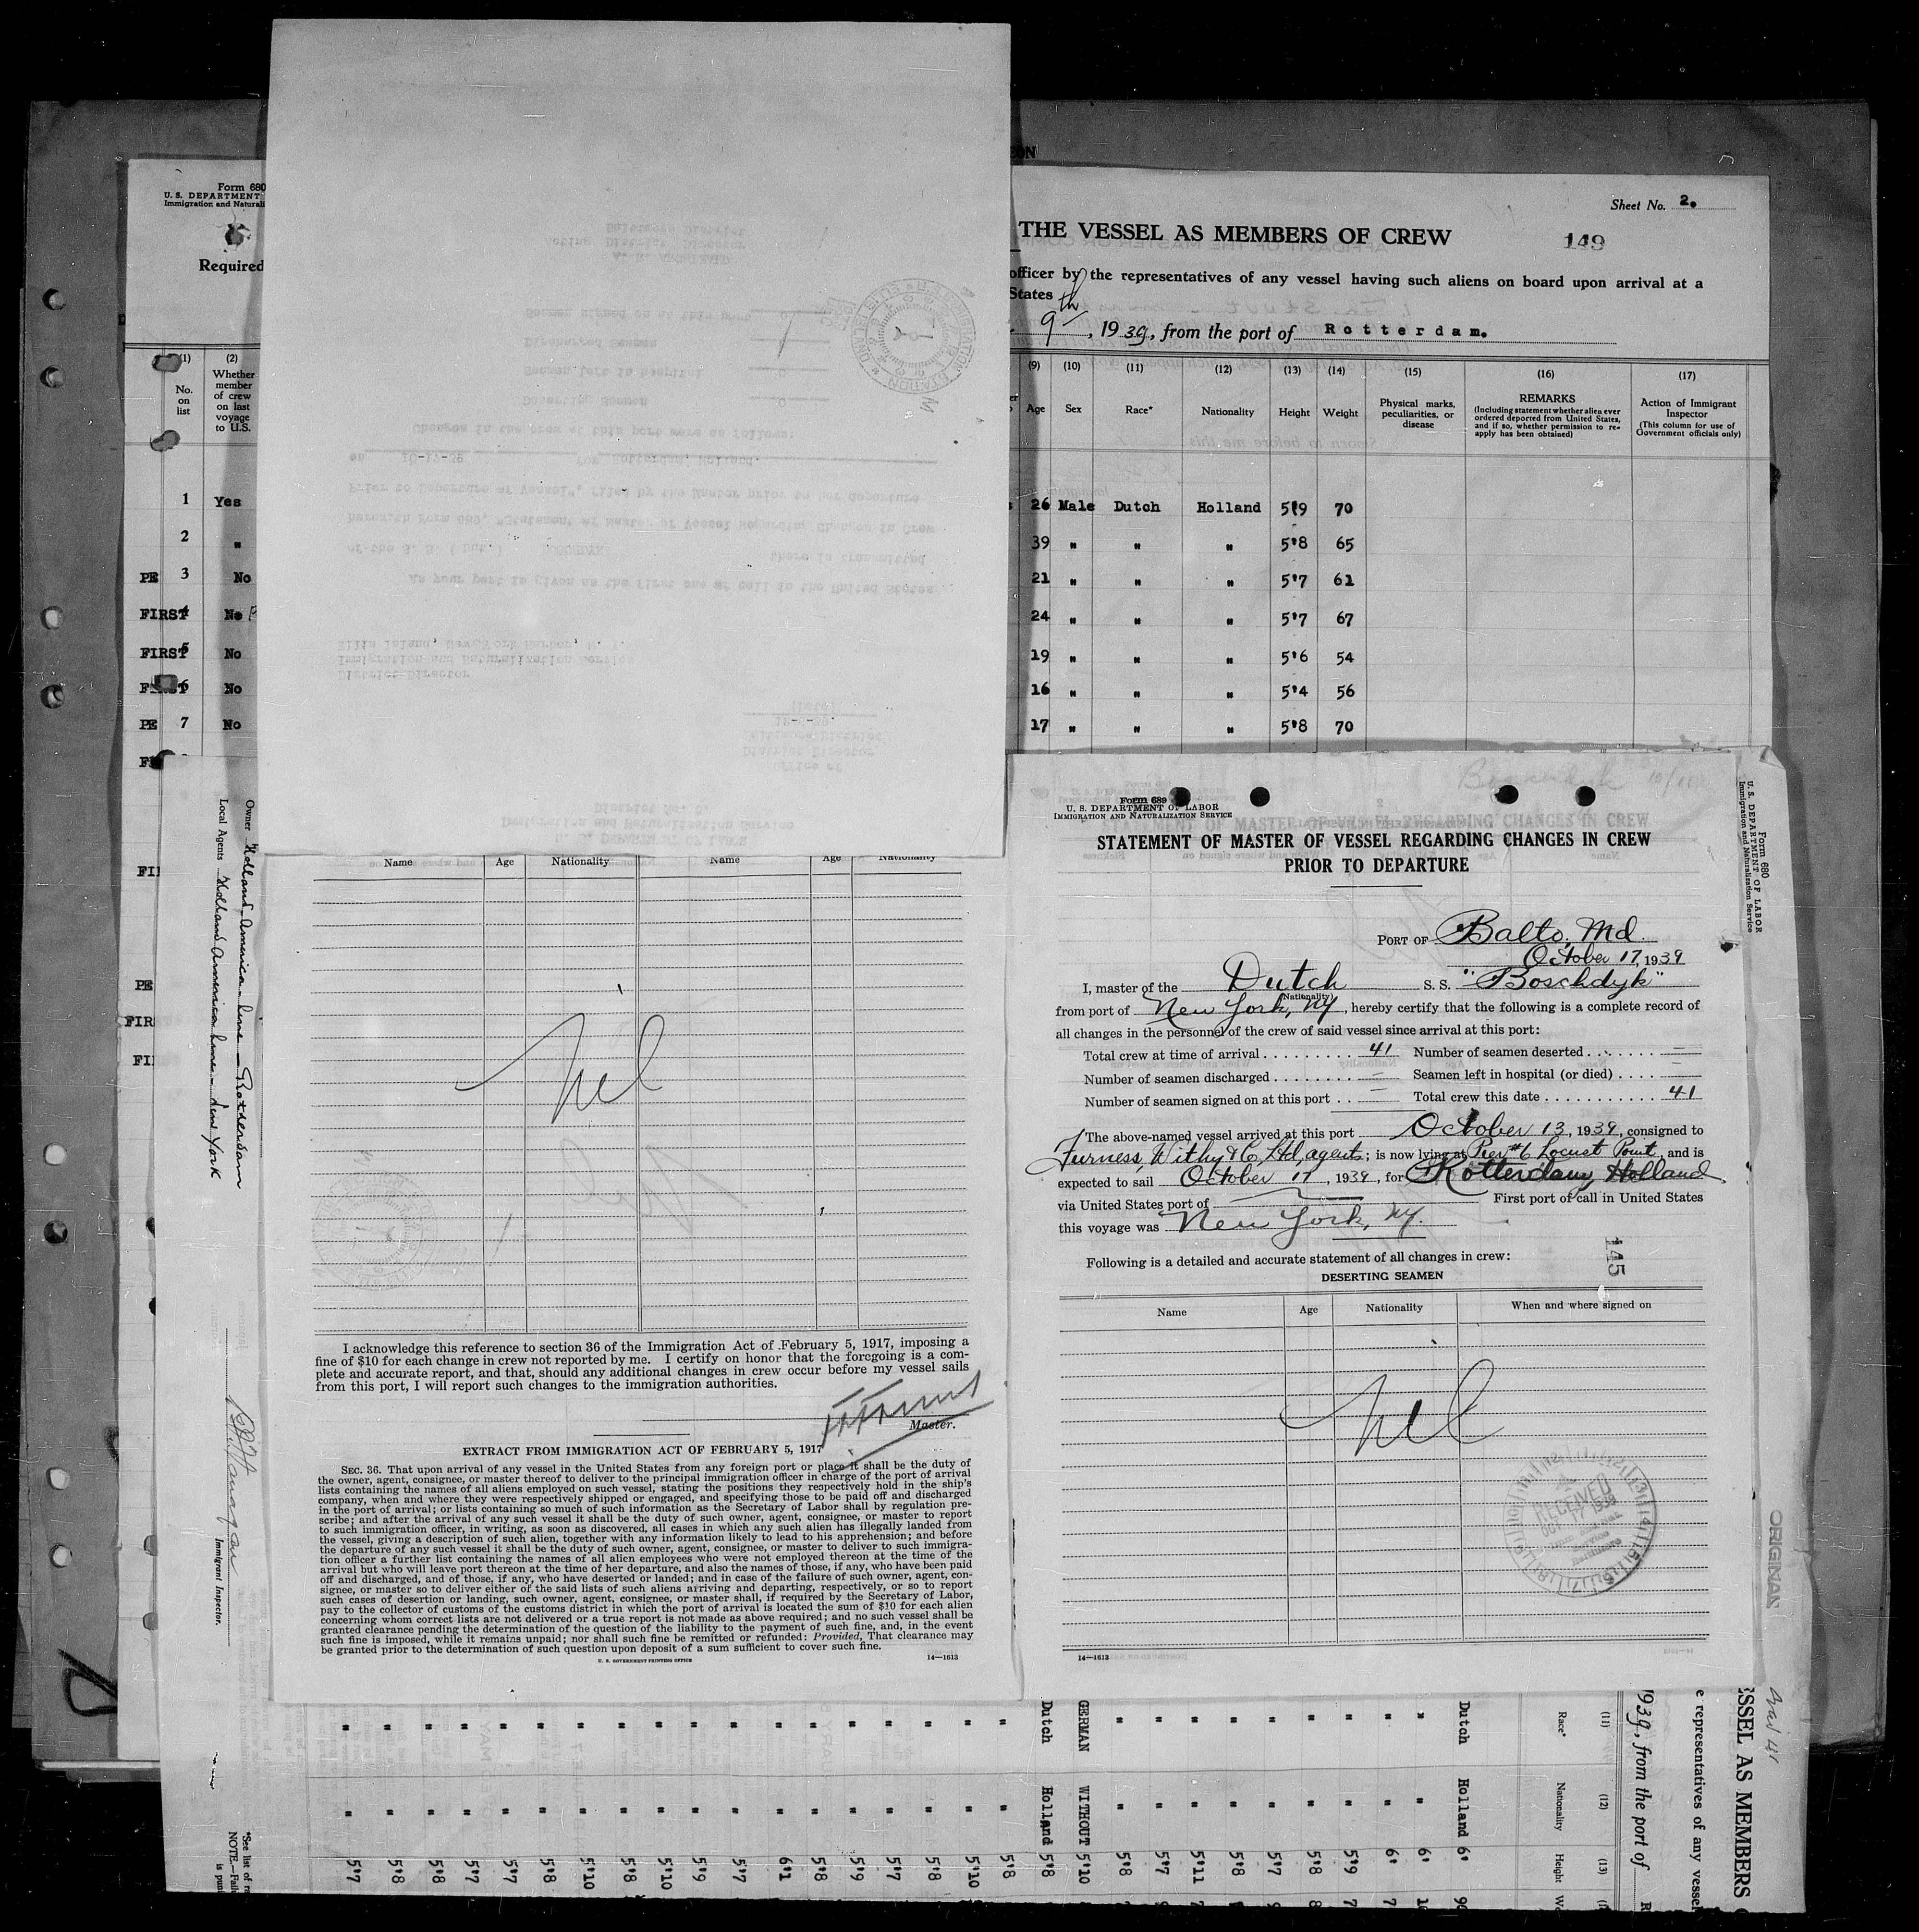 Form 680
U. S. DEPARTMENT
Immigration and Naturali
Required
Sheet No. 2.
THE VESSEL AS MEMBERS OF CREW
149
officer by the representatives of any vessel having such aliens on board upon arrival at a
States
9th, 1939, from the port of Rotterdam.
(1) (2) (9) (10) (11) (12) (13) (14) (15) (16) (17)
No. on list
Whether member of crew on last voyage to U.S.
Age Sex Race* Nationality Height Weight
Physical marks, peculiarities, or disease
REMARKS
(Including statement whether alien ever ordered deported from United States, and if so, whether permission to reapply has been obtained)
Action of Immigrant Inspector
(This column for use of Government officials only)
1 Yes 26 Male Dutch Holland 5'9 70
2 " 39 " " " 5'8 65
PE 3 No 21 " " " 5'7 61
FIRST 4 No 24 " " " 5'7 67
FIRST 5 No 19 " " " 5'6 54
FIRST 6 No 16 " " " 5'4 56
PE 7 No 17 " " " 5'8 70
FI
PE
FIR
FI
Owner Holland America line - Rotterdam
Local Agents Holland America line - New York
Immigrant Inspector.
Name Age Nationality Name Age Nationality
Nil
I acknowledge this reference to section 36 of the Immigration Act of February 5, 1917, imposing a
fine of $10 for each change in crew not reported by me. I certify on honor that the foregoing is a com-
plete and accurate report, and that, should any additional changes in crew occur before my vessel sails
from this port, I will report such changes to the immigration authorities.
Master.
EXTRACT FROM IMMIGRATION ACT OF FEBRUARY 5, 1917
SEC. 36. That upon arrival of any vessel in the United States from any foreign port or place it shall be the duty of
the owner, agent, consignee, or master thereof to deliver to the principal immigration officer in charge of the port of arrival
lists containing the names of all aliens employed on such vessel, stating the positions they respectively hold in the ship's
company, when and where they were respectively shipped or engaged, and specifying those to be paid off and discharged
in the port of arrival; or lists containing so much of such information as the Secretary of Labor shall by regulation pre-
scribe; and after the arrival of any such vessel it shall be the duty of such owner, agent, consignee, or master to report
to such immigration officer, in writing, as soon as discovered, all cases in which any such alien has illegally landed from
the vessel, giving a description of such alien, together with any information likely to lead to his apprehension; and before
the departure of any such vessel it shall be the duty of such owner, agent, consignee, or master to deliver to such immigra-
tion officer a further list containing the names of all alien employees who were not employed thereon at the time of the
arrival but who will leave port thereon at the time of her departure, and also the names of those, if any, who have been paid
off and discharged, and of those, if any, who have deserted or landed; and in case of the failure of such owner, agent, con-
signee, or master so to deliver either of the said lists of such aliens arriving and departing, respectively, or so to report
such cases of desertion or landing, such owner, agent, consignee, or master shall, if required by the Secretary of Labor,
pay to the collector of customs of the customs district in which the port of arrival is located the sum of $10 for each alien
concerning whom correct lists are not delivered or a true report is not made as above required; and no such vessel shall be
granted clearance pending the determination of the question of the liability to the payment of such fine, and, in the event
such fine is imposed, while it remains unpaid; nor shall such fine be remitted or refunded: Provided, That clearance may
be granted prior to the determination of such question upon deposit of a sum sufficient to cover such fine.
U. S. GOVERNMENT PRINTING OFFICE 14—1613
Form 689
U. S. DEPARTMENT OF LABOR
IMMIGRATION AND NATURALIZATION SERVICE
STATEMENT OF MASTER OF VESSEL REGARDING CHANGES IN CREW
PRIOR TO DEPARTURE
PORT OF Balto, Md.
October 17, 1939
I, master of the Dutch S. S. "Boschdyk"
(Nationality)
from port of New York, NY, hereby certify that the following is a complete record of
all changes in the personnel of the crew of said vessel since arrival at this port:
Total crew at time of arrival 41 Number of seamen deserted —
Number of seamen discharged — Seamen left in hospital (or died) —
Number of seamen signed on at this port — Total crew this date 41
The above-named vessel arrived at this port October 13, 1939, consigned to
Furness, Withy & Co, Ltd, agents; is now lying at Pier #6 Locust Point, and is
expected to sail October 17, 1939, for Rotterdam, Holland
via United States port of — First port of call in United States
this voyage was New York, NY.
Following is a detailed and accurate statement of all changes in crew:
145
DESERTING SEAMEN
Name Age Nationality When and where signed on
Nil
RECEIVED
OCT 17 1939
14—1613
Form 680
U. S. DEPARTMENT OF LABOR
Immigration and Naturalization Service
ORIGINAL
ESSEL AS MEMBERS
e representatives of any vessel
1939, from the port of R
(11) (12) (13)
Race* Nationality Height
Dutch Holland 6'
" " 6'
" " 6'
" " 5'9
" " 5'8
" " 5'7
" " 5'8
" " 5'11
" " 5'7
" " 5'8
GERMAN WITHOUT 5'10
Dutch Holland 5'8
" " 5'8
" " 5'10
" " 5'8
" " 5'7
" " 5'9
" " 5'8
" " 6'1
" " 5'7
" " 5'9
" " 5'8
" " 5'10
" " 5'8
" " 5'7
" " 5'7
" " 5'8
" " 5'8
" " 5'7
*See list of r
NOTE.—Fail
is pun